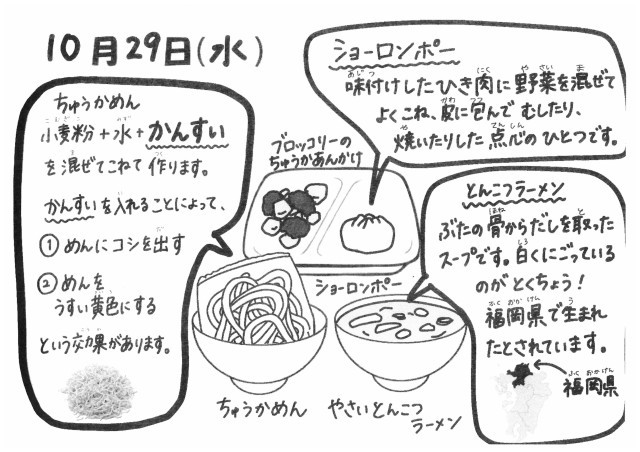 10月29日(水)
ショーローンポー
味付けしたひき肉に野菜を混ぜて
よくこね、皮に包んでむしたり、
焼いたりした点心のひとつです。
ちゅうかめん
小麦粉+水+かんすい
を混ぜてこねて作ります。
かんすいを入れることによって、
①めんにコシを出す
②めんを
うすい黄色にする
という効果があります。
ブロッコリーの
ちゅうかあんかけ
ショーロンポー
とんこつラーメン
ぶたの骨からだしを取った
スープです。白くにごっている
のがとくちょう!
福岡県で生まれ
たとされています。
福岡県
ちゅうかめん
やさいとんこつ
ラーメン